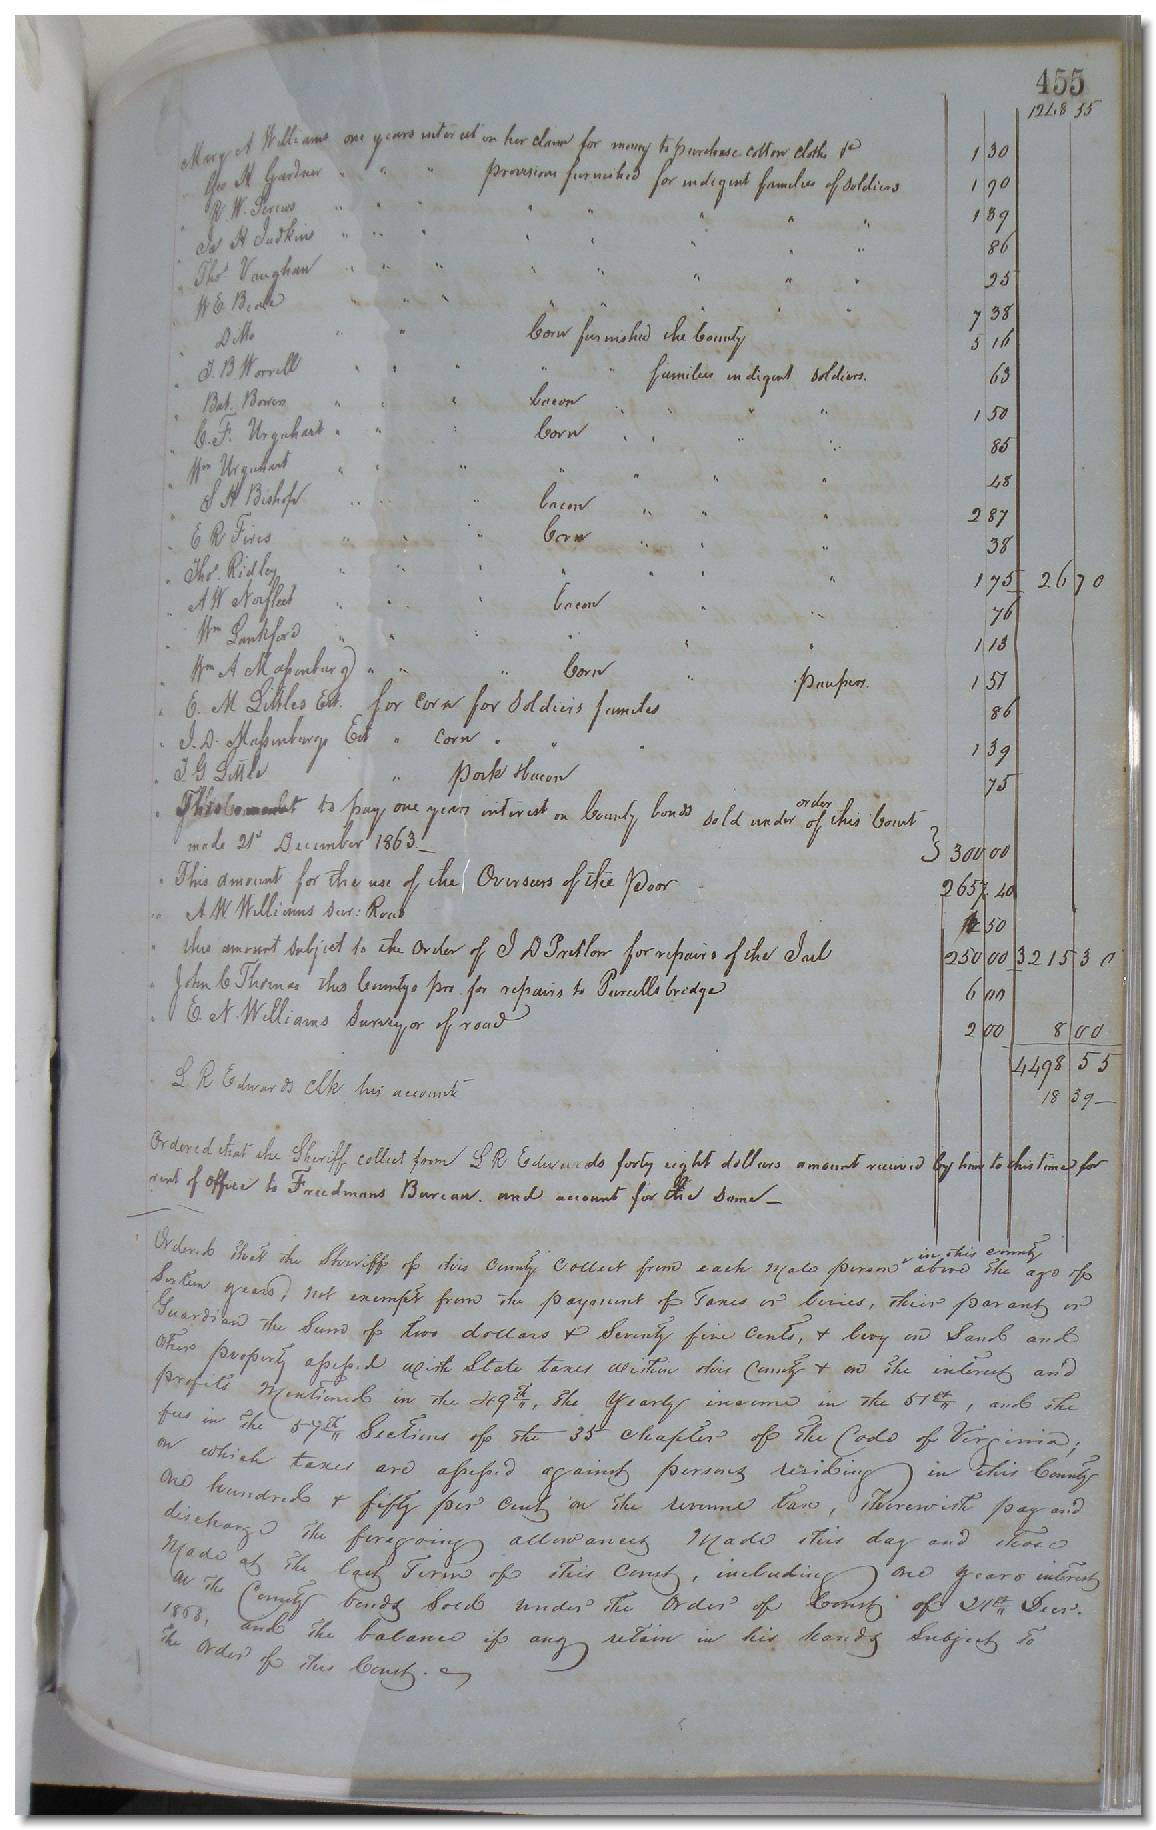 455
1248 55
Mary A Williams one years interest on her claim for money to purchase cotton cloths &c 1 30
" Geo M Gardner " " " provisions furnished for indigent families of Soldiers 1 90
" R. W. Screws " " " " " " " " 1 39
" Jas H Judkins " " " " " " " " 86
" Thos Vaughan " " " " " " " " 25
" W E Beale " " " " " " " " 7 38
" Ditto " " Corn furnished the County 5 16
" J. B Worrell " " " " " families indigent Soldiers. 63
" Bat. Bowen " " " bacon " " " " 1 50
" C. F. Urquhart " " " Corn " " " " 85
" Wm Urquhart " " " " " " " 48
" S H Bishop " " " bacon " " " 2 87
" E R Fires " " " Corn " " " 38
" Thos. Ridley " " " " " " " 1 75 26 70
" A W Norfleet " " " bacon " " 76
" Wm Lankford " " " " " " 1 13
" Wm A Massenburg " " " Corn " paupers. 1 51
" E. M Littles Est. for corn for Soldiers families 86
" J. D. Massenburgs Est " corn " " " 1 39
" J G Little " pork & bacon 75
" This to pay one years interest on County bonds sold under order of this Court
made 21st December 1863_ } 300 00
" This amount for the use of the Overseers of the Poor 2657 40
" A W Williams Sur: Road 50
" this amount subject to the order of J D Pretlow for repairs of the Jail 250 00 3215 30
" John C Thomas this Countys pro. for repairs to Purcells bridge 6 00
" E. N. Williams Surveyor of road 2 00 8 00
4498 55
" L R Edwards Clk his account 18 39_
Ordered that the Sheriff collect from L R Edwards forty eight dollars amount received by him to this time for
rent of office to Freedmans Bureau. and account for the same_
Ordered that the Sheriff of this County Collect from each Male person in this county above the age of
Sixteen years, not exempt from the payment of Taxes or levies, their parent or
Guardian the Sum of two dollars & Seventy five Cents, & levy on Land and
other property assessed with State taxes within this County & on the interest and
profits Mentioned in the 49th, the Yearly income in the 51st, and the
fees in the 57th Sections of the 35 chapter of the Code of Virginia;
on which taxes are assessed against persons residing in this County
one hundred & fifty per cent on the revenue tax, therewith pay and
discharge the foregoing allowances Made this day and those
Made at the last Term of this Court, including one years interest
on the County bonds Sold under the Order of Court of 21st Decr.
1863, and the balance if any retain in his hands Subject to
the Order of this Court.